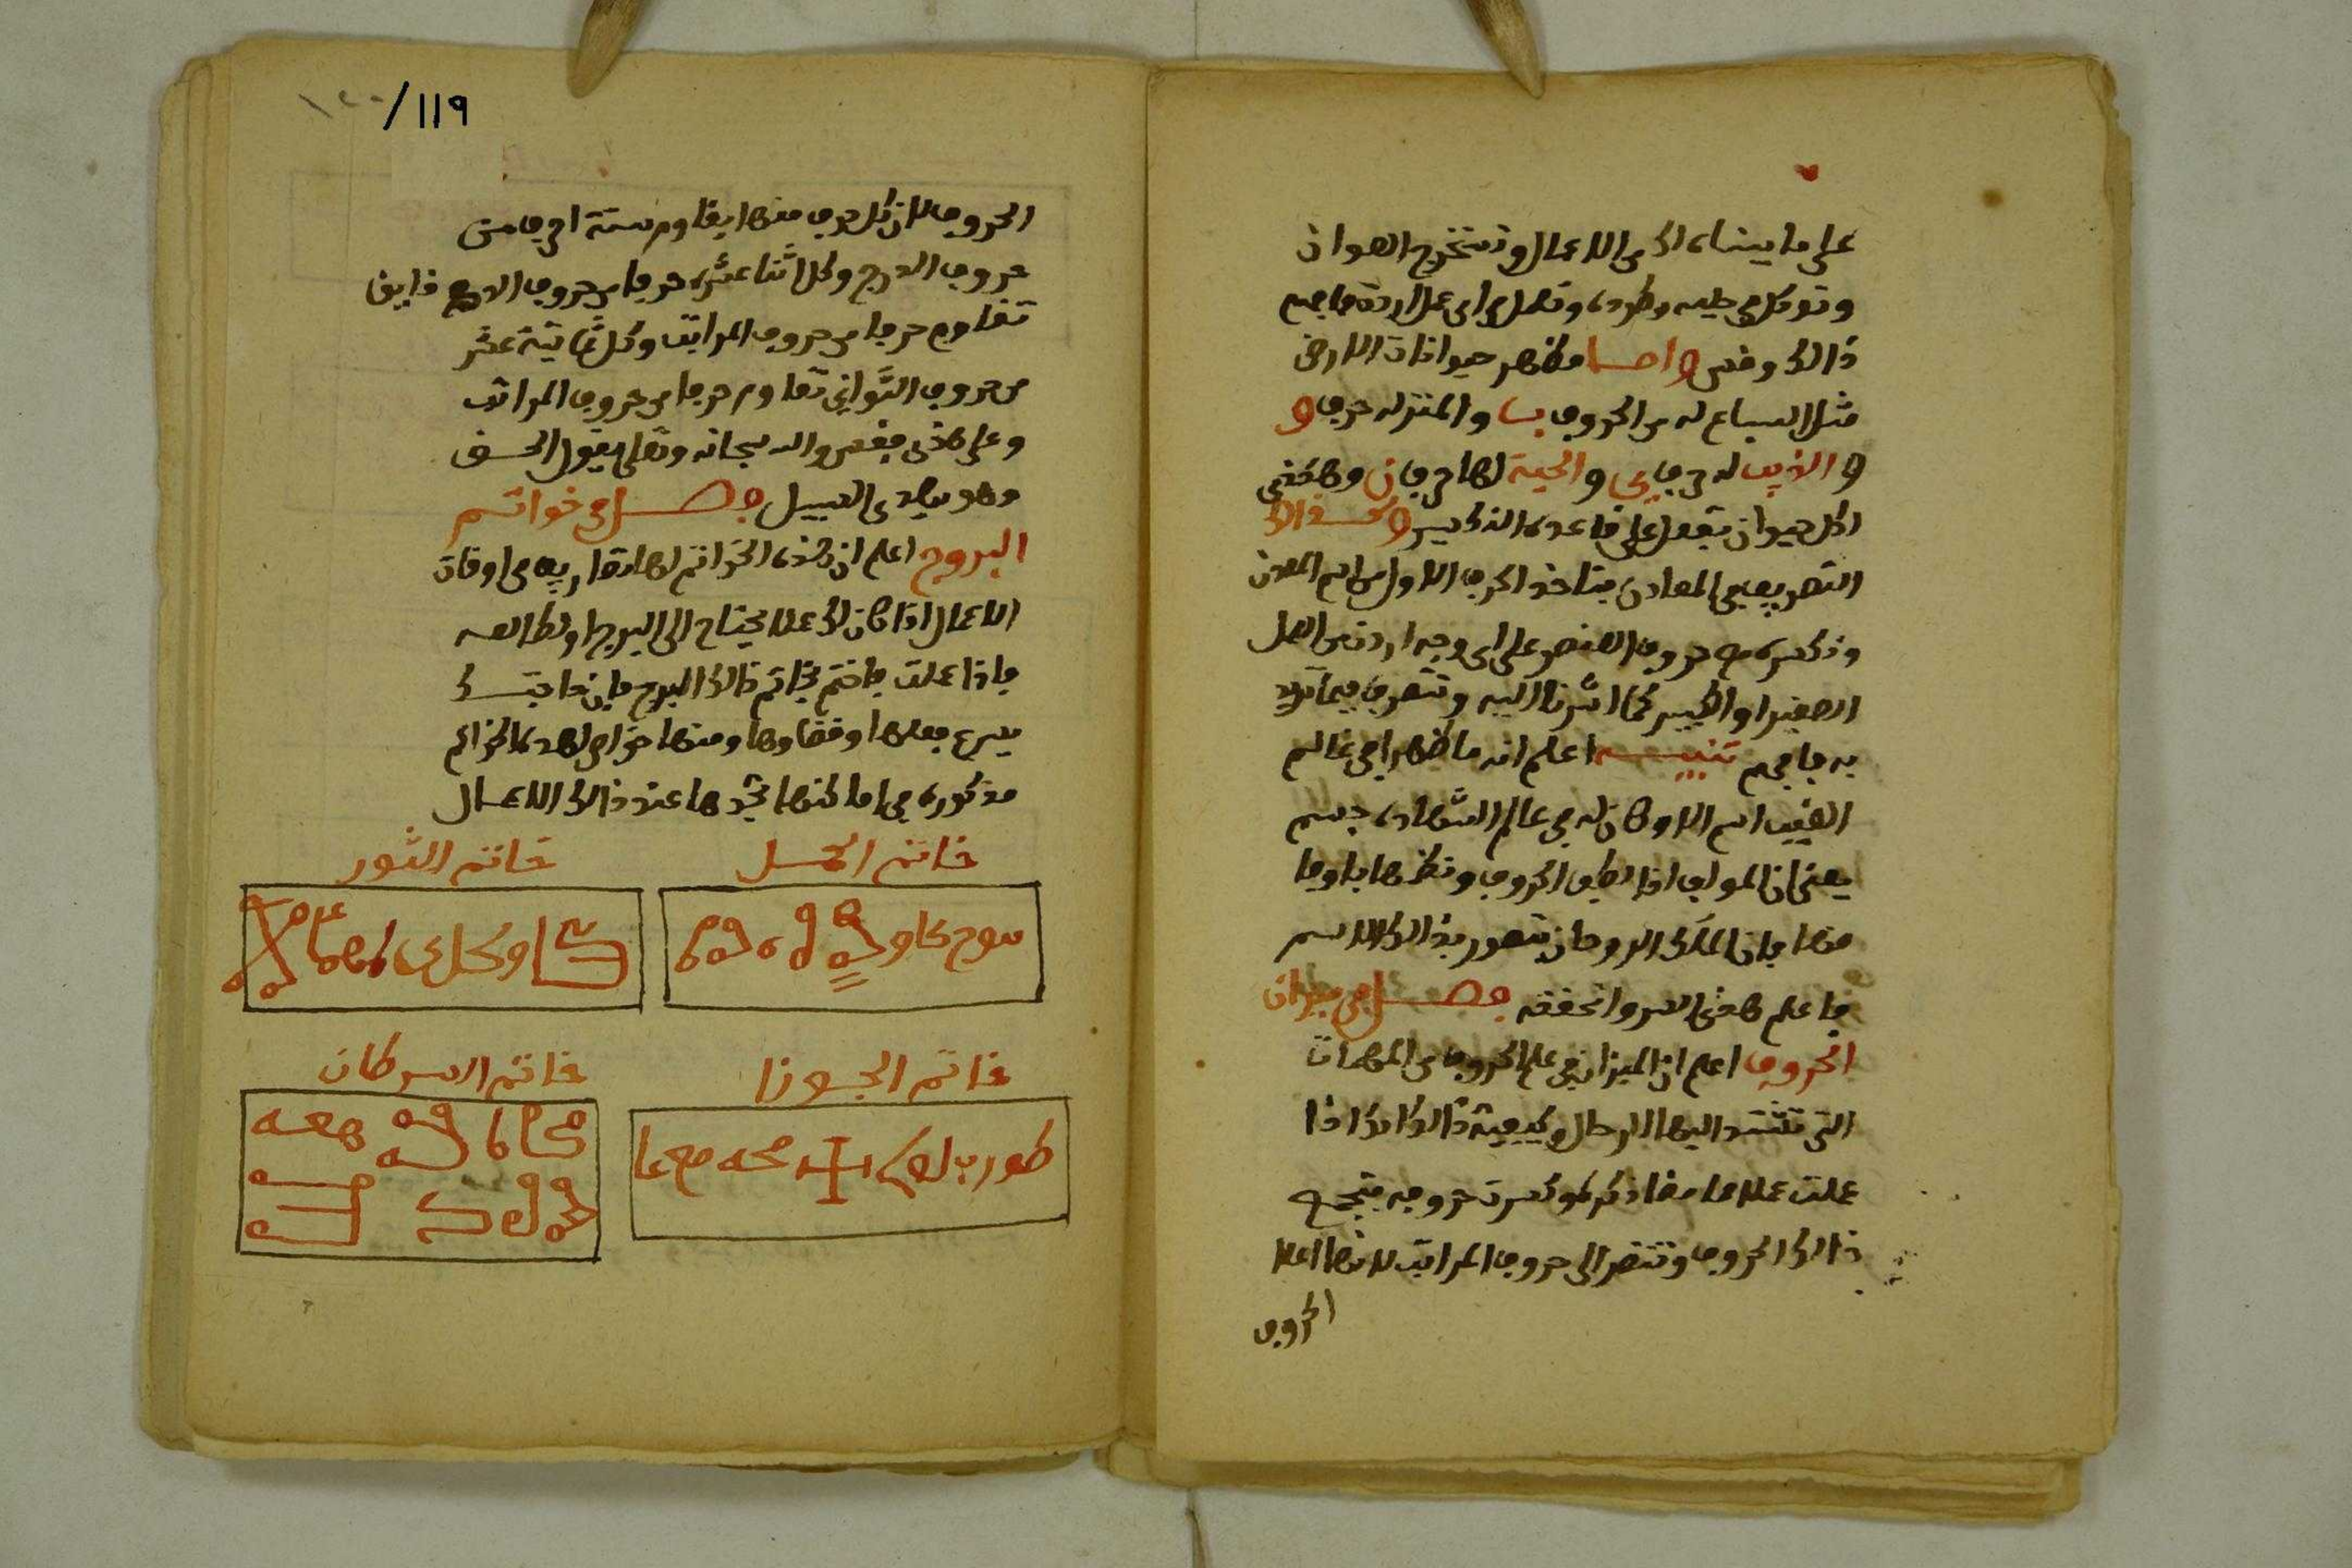 على ما بيناه لك من الاعمال وتستخرج العوان
وتوكله على طيه وطرده وتعمل به اى عمل اردته فافهم
ذالك وقس واما مظهر حيوانات الارض
مثل السباع له من الحروف بسا والمنزله حرف و
و الذيب له حرف ى والحية لها حرف ن وهكذى
لكل حيوان تفعل على قاعده التكسير وكذالك
التصريف فى المعادن فتاخذ الحرف الاول من اسم المعدن
وتكسره مع حروف العنصر على اى وجه اردت من العمل
الصغير او الكبير كما اشرنا اليه وتتصرف فيما تريد
به فافهم تنبيه اعلم انه ما ظهر فى عالم
الغيب اسم الا وكان له فى عالم الشهاده جسم
يعنى ان المولف اذا الف الحروف ونظرها باوفا
منها فان الملك الروحان يتصور بذالك الاسم
فاعلم هذى السر واتحققه فصل فى ميزان
الحروف اعلم ان الميزان فى علم الحروف من المهمات
التى تشتد اليها الرحال وكيفية ذالك انك اذا
عملت عملا مما ذكر لك وكسرت حروفه فتجمع
ذالك الحروف وتنظر الى حروف المراتب لانها اعلا
الحروف
١١٩/
الحروف لان كل حرف منها يقاوم ستة احرف من
حروف الدرج وكل اثنا عشره حرفا من حروف الدرج دايق
تقاوم حرفا من حروف المراتب وكل ثمانية عشر
من حروف الثواني تقاوم حرفا من حروف المراتب
وعلى هذى فقس والله سبحانه وتعلى يقول الحق
وهو يهدى السبيل فصل فى خواتم
البروج اعلم ان هذه الخواتم لها تصاريف فى اوقات
الاعمال اذا كان لك عملا يحتاج الى البرج او طالعه
فاذا عملت فاختم بخاتم ذالك البرج فان حاجتك
يسرع فعلها وقضاوها ومنها خواص لهده الخواتم
مذكوره فى اماكنها تجدها عند ذالك الاعمال
خاتم الحمل
خاتم الثور
خاتم الجوزا
خاتم السرطان